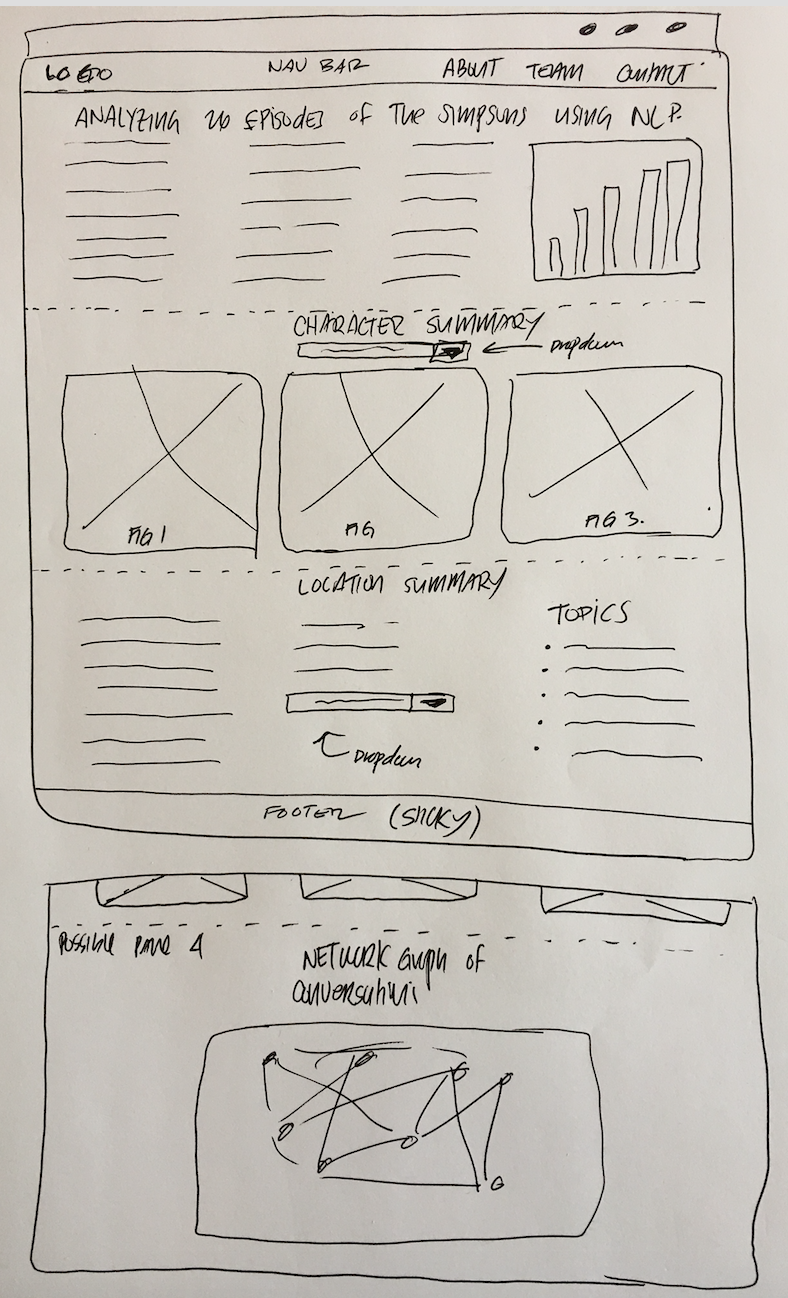 LOGO NAV BAR ABOUT TEAM CONTACT
ANALYZING 26 EPISODES of The SIMPSONS USING NLP.
CHARACTER SUMMARY
Dropdown
FIG 1 FIG FIG 3.
LOCATION SUMMARY
TOPICS
Dropdown
FOOTER (STICKY)
POSSIBLE PANE 4
NETWORK Graph of
Conversations